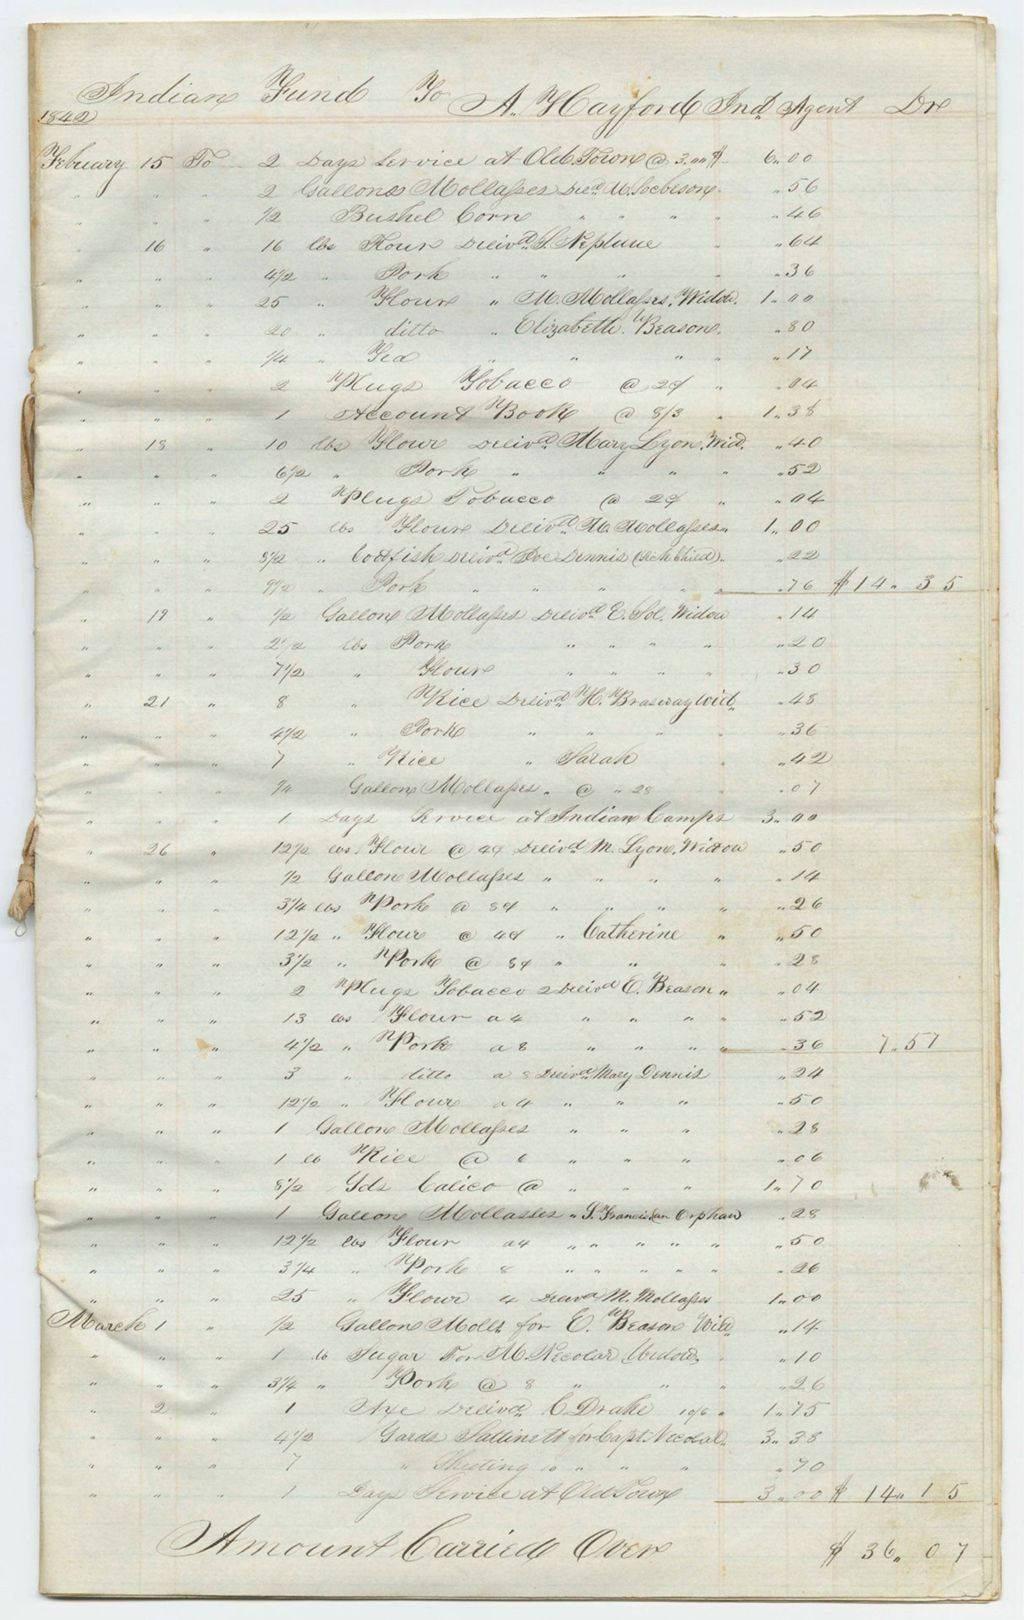 Indian Fund To A. Hayford Ind. Agent Dr
1842
February 15 To 2 Days Service at Old Town @ 3.00 $ 6.00
" " " 2 Gallons Mollasses Delivd. " .56
" " " 1/2 Bushel Corn " " " " .46
" 16 " 16 lbs Flour Delivd. S. Neptune " .64
" " " 4 1/2 " Pork " " " " .36
" " " 25 " Flour " M. Mollasses, Widow. 1.00
" " " 20 " ditto " Elizabeth Beason. .80
" " " 1/4 " Tea " " " " .17
" " " 2 Plugs Tobacco @ 2¢ " .04
" " " 1 Account Book @ 8/3 " 1.38
" 18 " 10 lbs Flour Delivd. Mary Lyon, Wid. .40
" " " 6 1/2 " Pork " " " " .52
" " " 2 Plugs Tobacco @ 2¢ " .04
" " " 25 lbs Flour Delivd. M. Mollasses " 1.00
" " " 5 1/2 " Codfish Delivd. Joe Dennis (Sick Child) " .22
" " " 9 1/2 " Pork " " " " " .76 $14.35
" 19 " 1/2 Gallon Mollasses Delivd E. Sol. Widow .14
" " " 2 1/2 lbs Pork " " " " .20
" " " 7 1/2 " Flour " " " " .30
" 21 " 8 " Rice Delivd. H. Brasway Wid. .48
" " " 4 1/2 " Pork " " " .36
" " " 7 " Rice " Sarah " .42
" " " 1/4 Gallon Mollasses " @ " 28 .07
" " " 1 Days Service at Indian Camps 3.00
" 26 " 12 1/2 lbs. Flour @ 4¢ Delivd M. Lyon, Widow .50
" " " 1/2 Gallon Mollasses " " " " .14
" " " 3 1/4 lbs Pork @ 8¢ " " " " .26
" " " 12 1/2 " Flour @ 4¢ " Catherine " .50
" " " 3 1/2 " Pork @ 8¢ " " " .28
" " " 2 Plugs Tobacco 2 Delivd E. Beason " .04
" " " 13 lbs Flour a 4 " " " " .52
" " " 4 1/2 " Pork a 8 " " " " .36 7.57
" " " 3 " ditto a 8 Delivd. Mary Dennis .24
" " " 12 1/2 " Flour a 4 " " " .50
" " " 1 Gallon Mollasses " " " .28
" " " 1 lb Rice @ 6 " " " .06
" " " 8 1/2 Yds Calico @ " " " 1.70
" " " 1 Gallon Mollasses " S. Francis an Orphan .28
" " " 12 1/2 lbs Flour a 4 " " " " " .50
" " " 3 1/4 " Pork 8 " " " " " .26
" " " 25 " Flour 4 Delivd M. Mollasses 1.00
March 1 " 1/2 Gallon Molls. for E. Beason Wid. .14
" " " 1 lb Sugar For M. Necolar Widow, " .10
" " " 3 1/4 " Pork @ 8 " " " .26
" 2 " 1 Axe Delivd. C. Drake 10/6 " 1.75
" " " 4 1/2 Yards Sattinett for Capt. Necolar. 3.38
" " " 7 " Sheeting " " " " .70
" " " 1 Days Service at Old Town 3.00 $ 14.15
Amount Carried Over $ 36.07